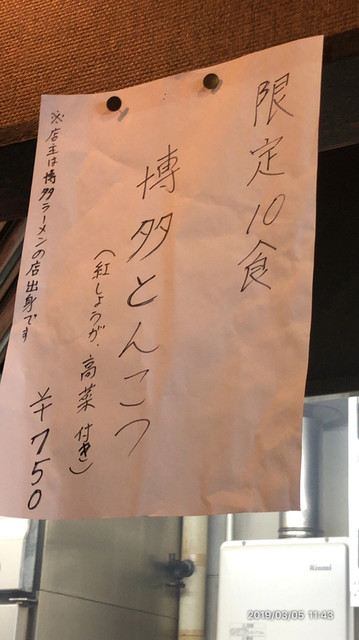 限定10食
博多とんこつ
(紅しょうが・高菜付き)
¥750
※店主は博多ラーメンの店出身です
Rinnai
2019/03/05 11:43